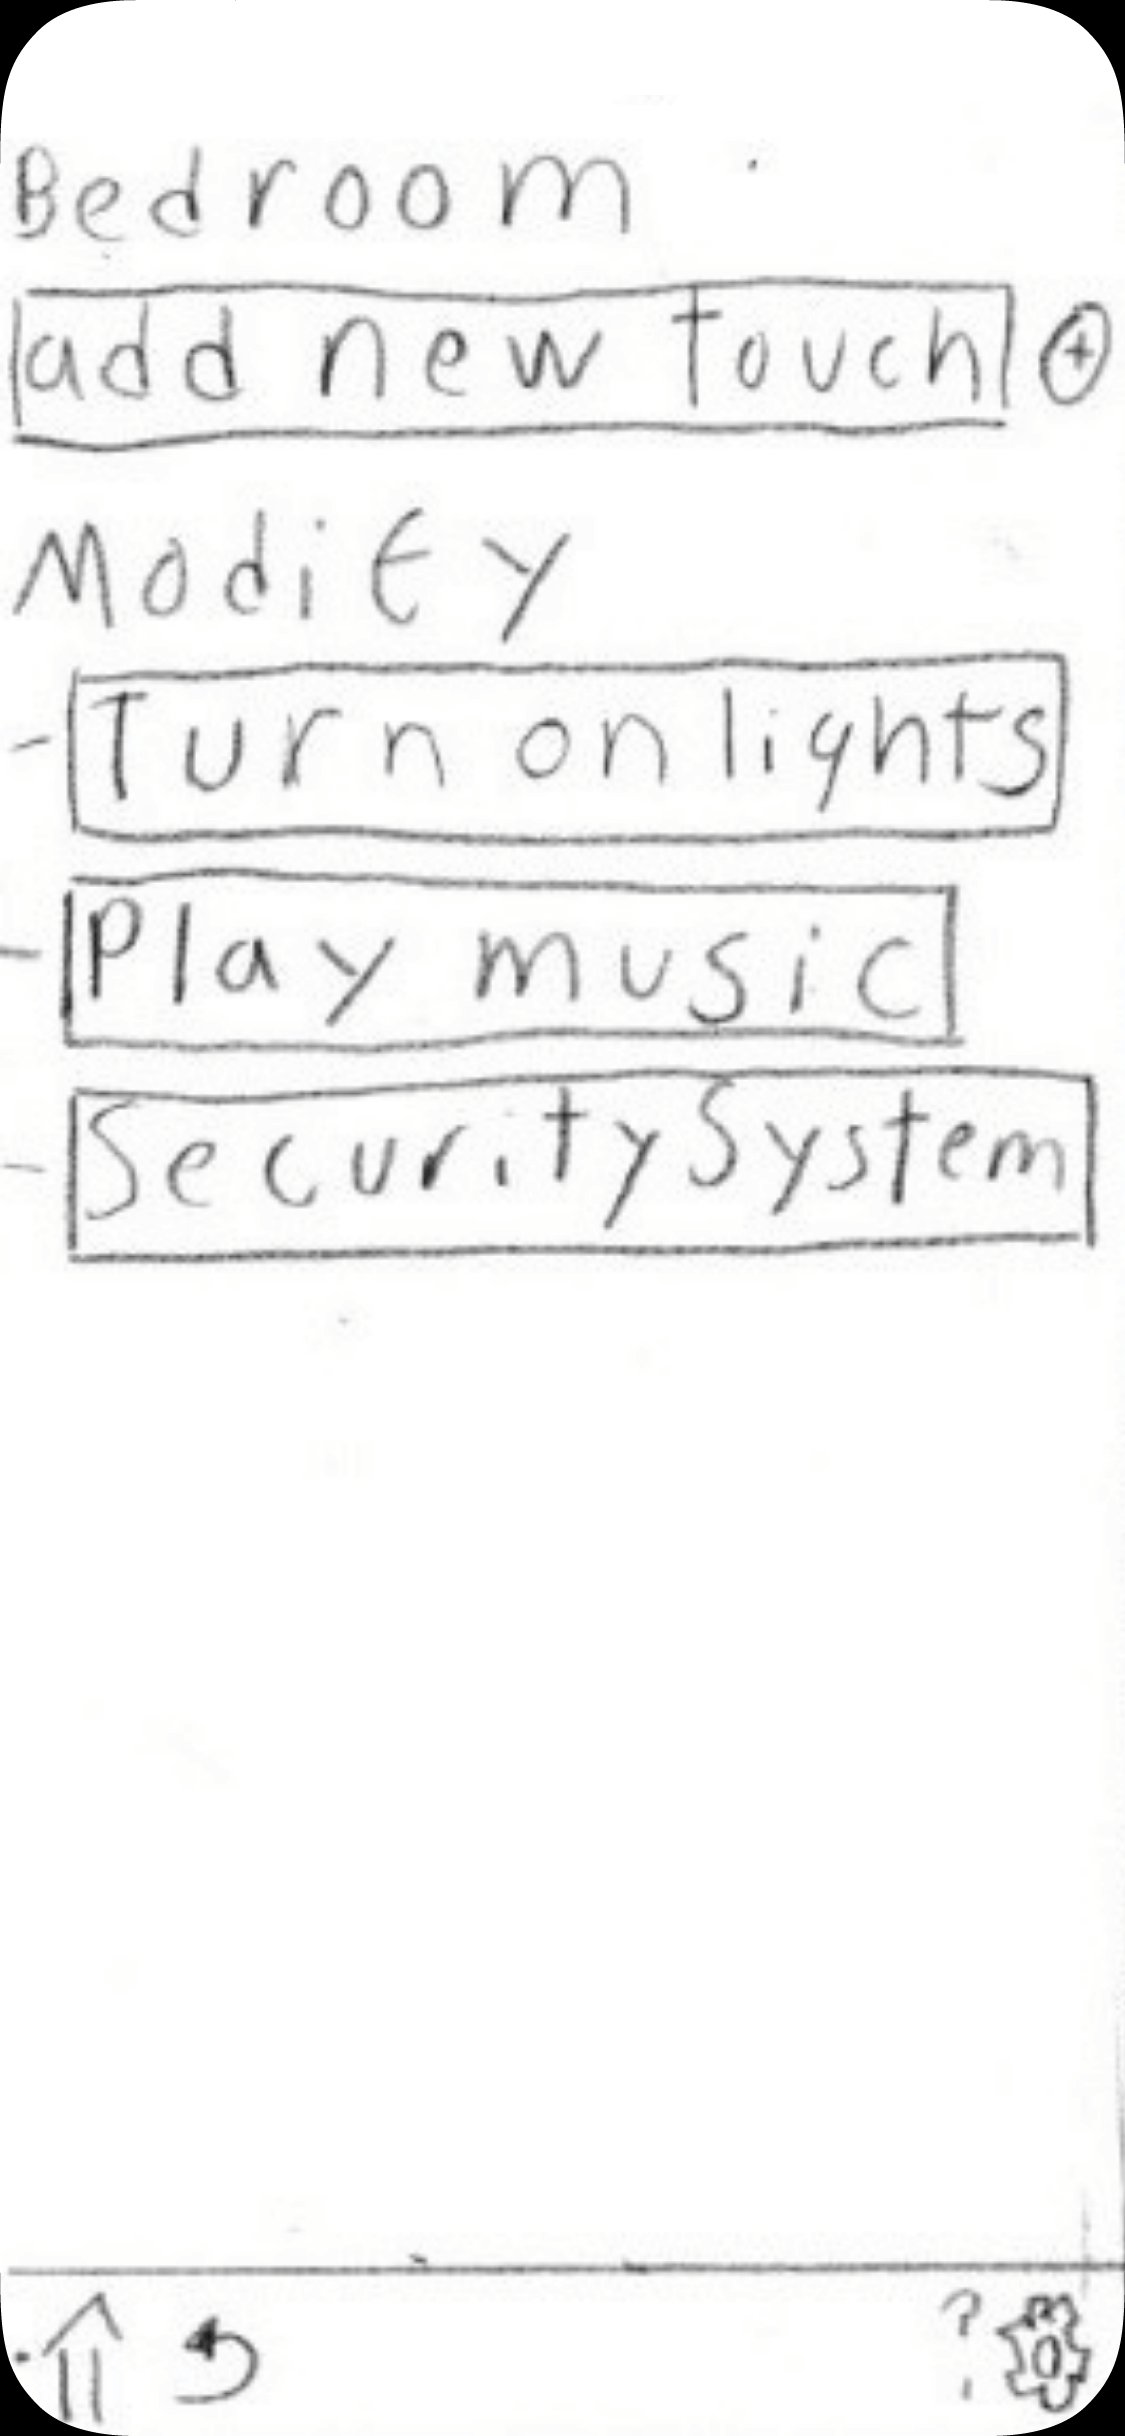 Bedroom
add new touch +
Modify
- Turn on lights
- Play music
- Security System
?